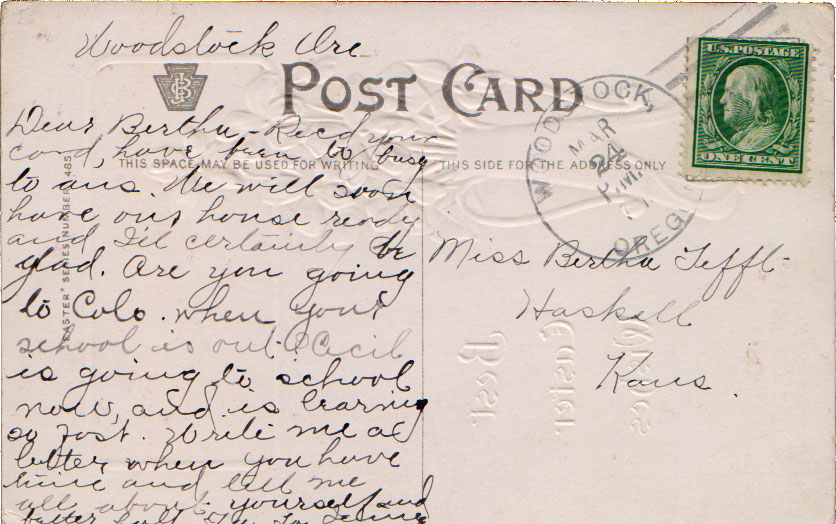 Woodstock Ore
POST CARD
U.S. POSTAGE
ONE CENT
WOODSTOCK,
MAR
24
P.M.
OREG.
THIS SPACE MAY BE USED FOR WRITING
THIS SIDE FOR THE ADDRESS ONLY
"EASTER" SERIES NUMBER 485
Dear Bertha, - Rec'd your
card, have been to busy
to ans. We will soon
have our house ready
and I'll certainly be
glad. Are you going
to Colo. when your
school is out? Cecil
is going to school
now, and is learning
so fast. Write me a
letter when you have
time and tell me
all about yourself and
better half
Miss Bertha Tefft
Haskell
Kans.
Best
Easter
Wishes